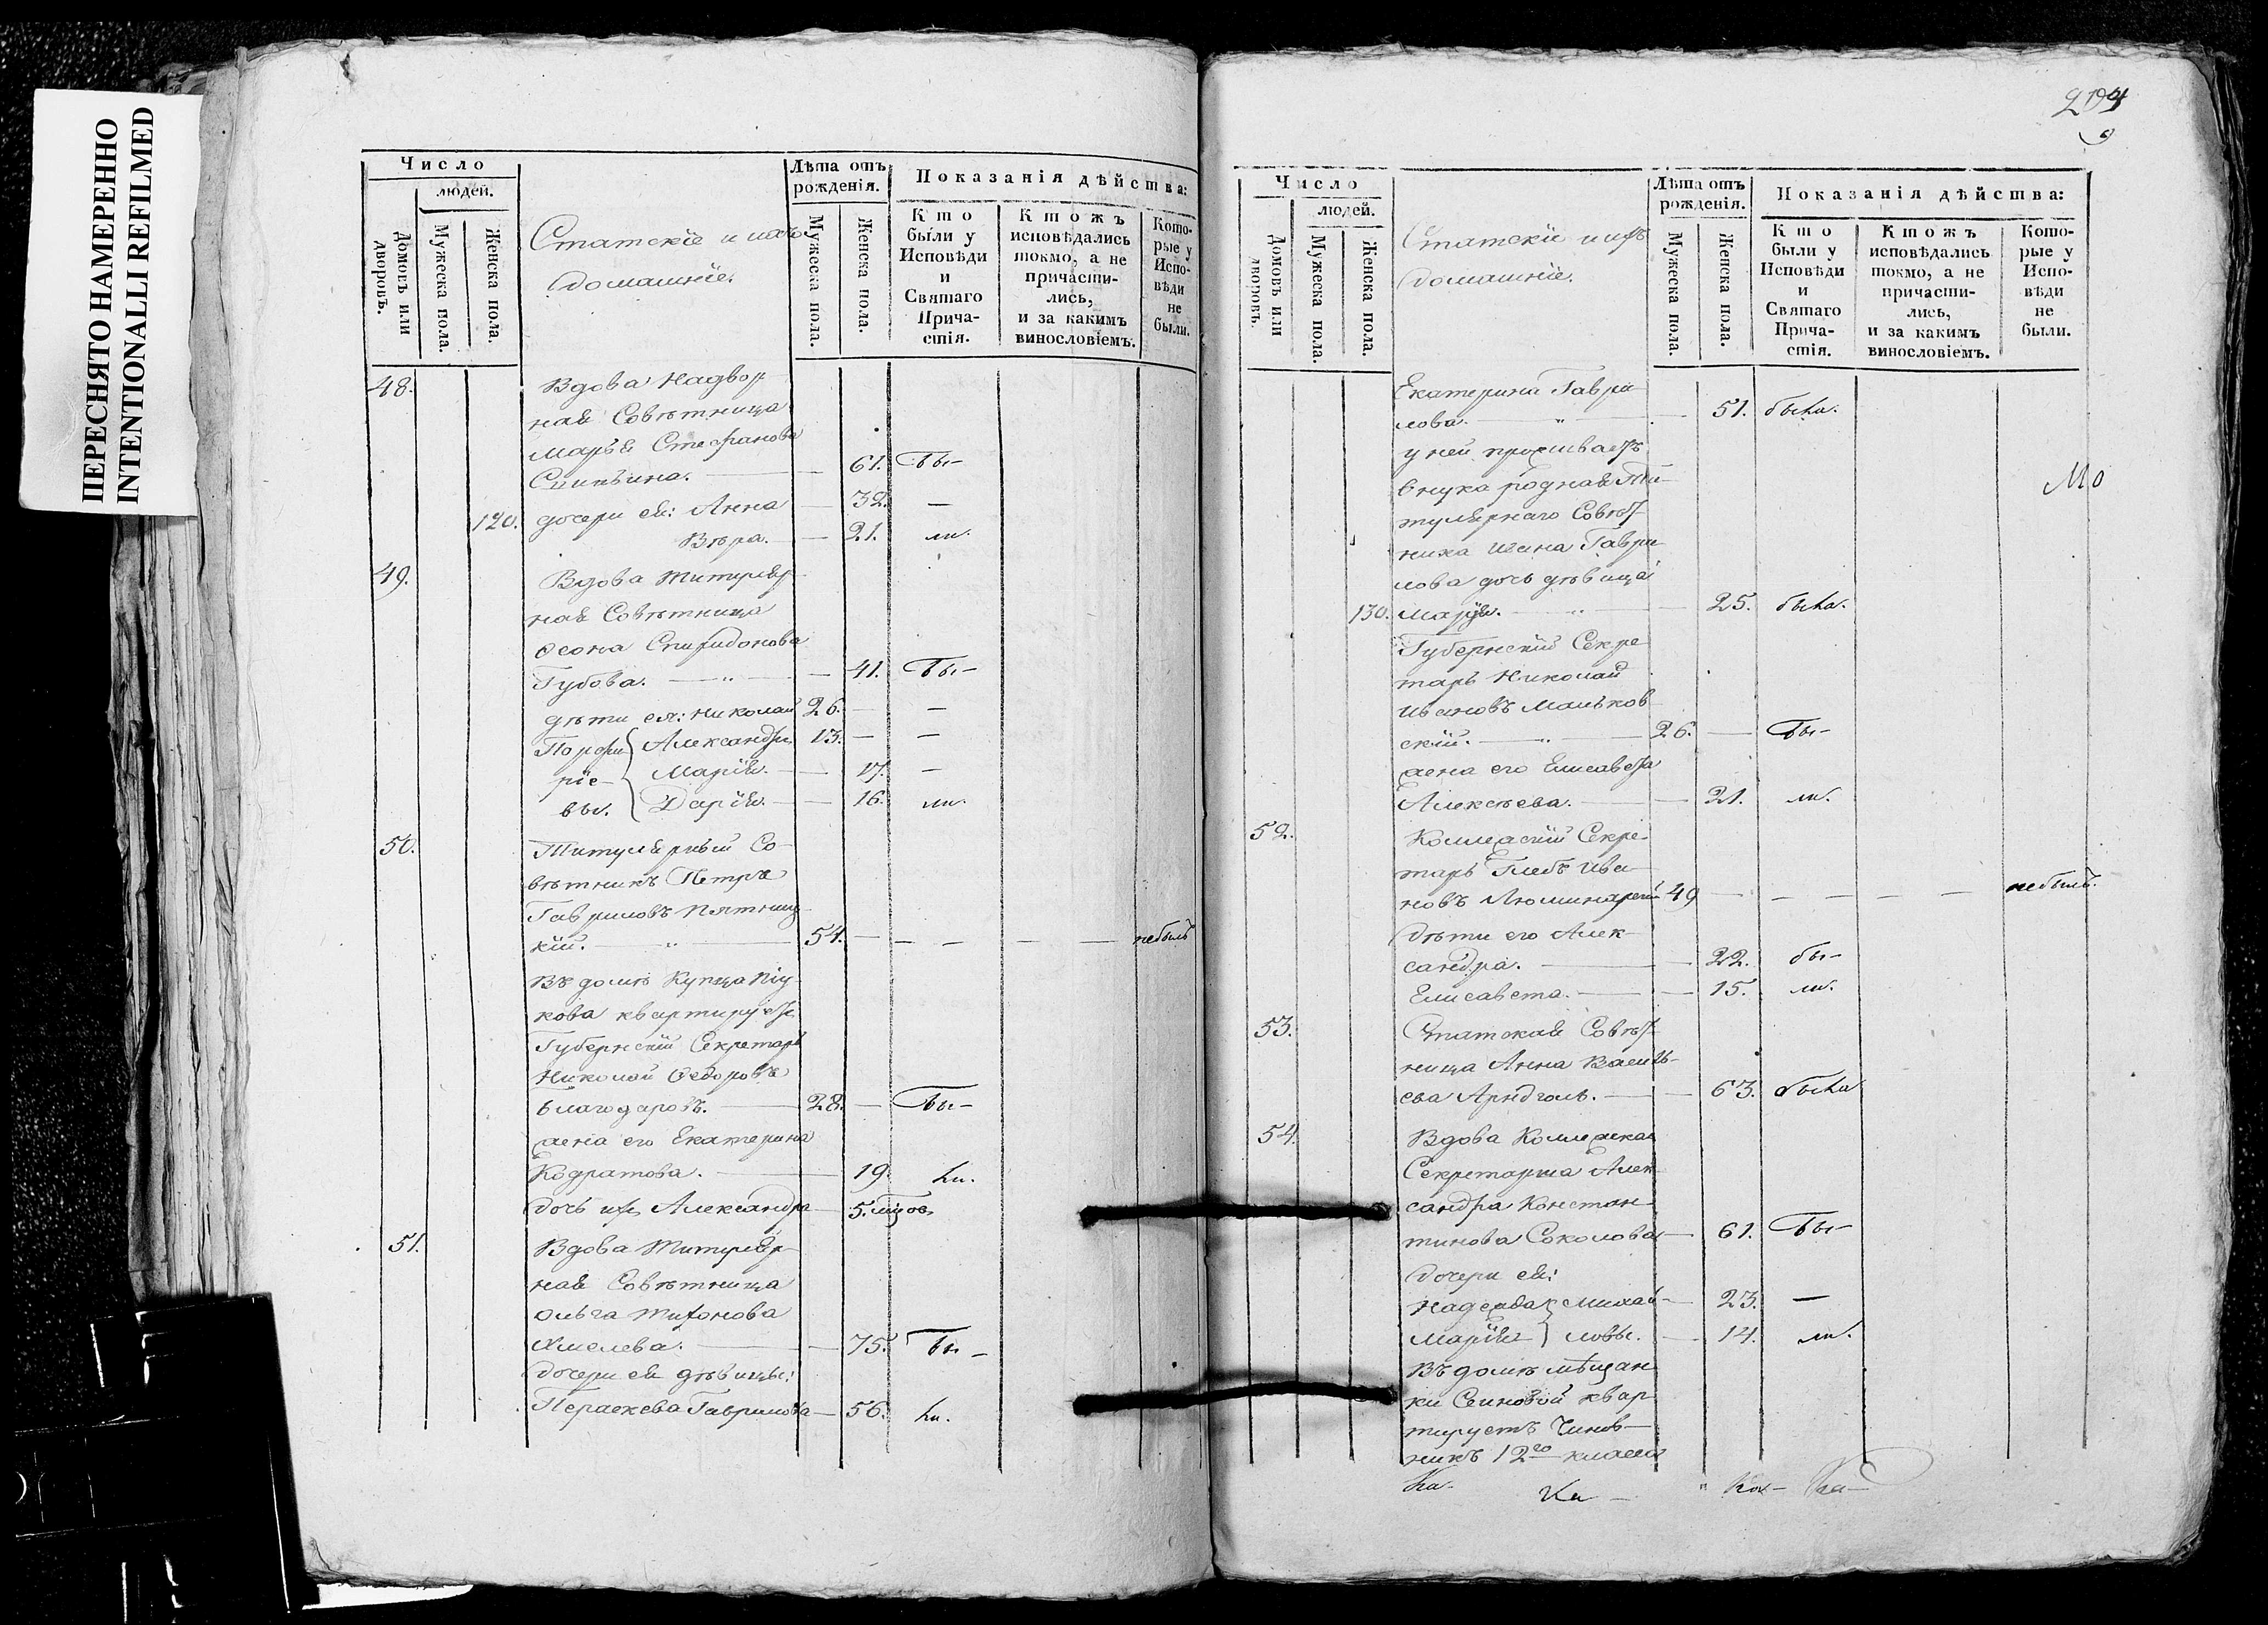 ПЕРЕСНЯТО НАМЕРЕННО
INTENTIONALLI REFILMED
Число
людей.
Домовъ или дворовъ.
Мужеска пола.
Женска пола.
Статскіе и ихъ
домашніе.
Лѣта отъ рожденія.
Мужеска пола.
Женска пола.
Показанія дѣйства:
Кто были у Исповѣди и Святаго Прича-стія.
Ктожъ исповѣдались токмо, а не причасти-лись, и за какимъ винословіемъ.
Кото-рые у Испо-вѣди не были.
48. Вдова Надвор
ная Совѣтница
Марья Стефанова
61. Бы-
120. дочери ея: Анна — 32. —
Вѣра. — 21. ли.
49. Вдова Титуляр
ная Совѣтница
Ѳеона Спиридонова
Губова. — " — 41. Бы-
дѣти ея: Николай 26. — —
Порфи { Александръ 13. — —
ріе- { Марія. — 17. —
вы. { Дарія. — 16. ли.
50. Титулярный Со-
вѣтникъ Петръ
Гавриловъ Пятниц
кій. — " — 54. — — — — — небылъ
Въ домѣ Купца
кова квартируетъ
Губернскій Секретарь
Николай Ѳедоровъ
Благодаровъ. — 28. — Бы-
жена его Екатерина
Кодратова. — 19. ли.
дочь ихъ Александра — 5. мцов
51. Вдова Титуляр-
ная Совѣтница
Ольга Тихонова
Хмелева. — 75. Бы-
дочери ея дѣвицы:
Параскева Гаврилова — 56. ли.
294
Число
людей.
Домовъ или дворовъ.
Мужеска пола.
Женска пола.
Статскіе и ихъ
домашніе.
Лѣта отъ рожденія.
Мужеска пола.
Женска пола.
Показанія дѣйства:
Кто были у Исповѣди и Святаго Прича-стія.
Ктожъ исповѣдались токмо, а не причасти-лись, и за какимъ винословіемъ.
Кото-рые у Испо-вѣди не были.
Екатерина Гаври
лова. — " — 51. была.
у ней проживаетъ
внука родная Ти-
тулярнаго Совѣт
ника Ивана Гаври
лова дочь дѣвица
130. Марія. — " — 25. была.
Губернскій Секре
тарь Николай
Ивановъ Маньков
скій. — " — 26. — Бы-
жена его Елисавета
Алексѣева. — 21. ли.
52. Коллежскій Секре-
тарь Глебъ Ива
новъ Люминарскій 49 — — — — — небылъ.
Дѣти его Алек-
сандра. — 22. бы-
Елисавета. — 15. ли.
53. Статская Совѣт
ница Анна Василь-
ева Арндголь. — 63. была
54. Вдова Коллежская
Секретарша Алек
сандра Констан-
тинова Соколова — 61. Бы-
Дочери ея:
Надежда } Михай- — 23. —
Марія } ловы. — 14. ли.
Въ домѣ мѣщан
ки Сеиновой квар
тируетъ Чинов-
никъ 12го класса